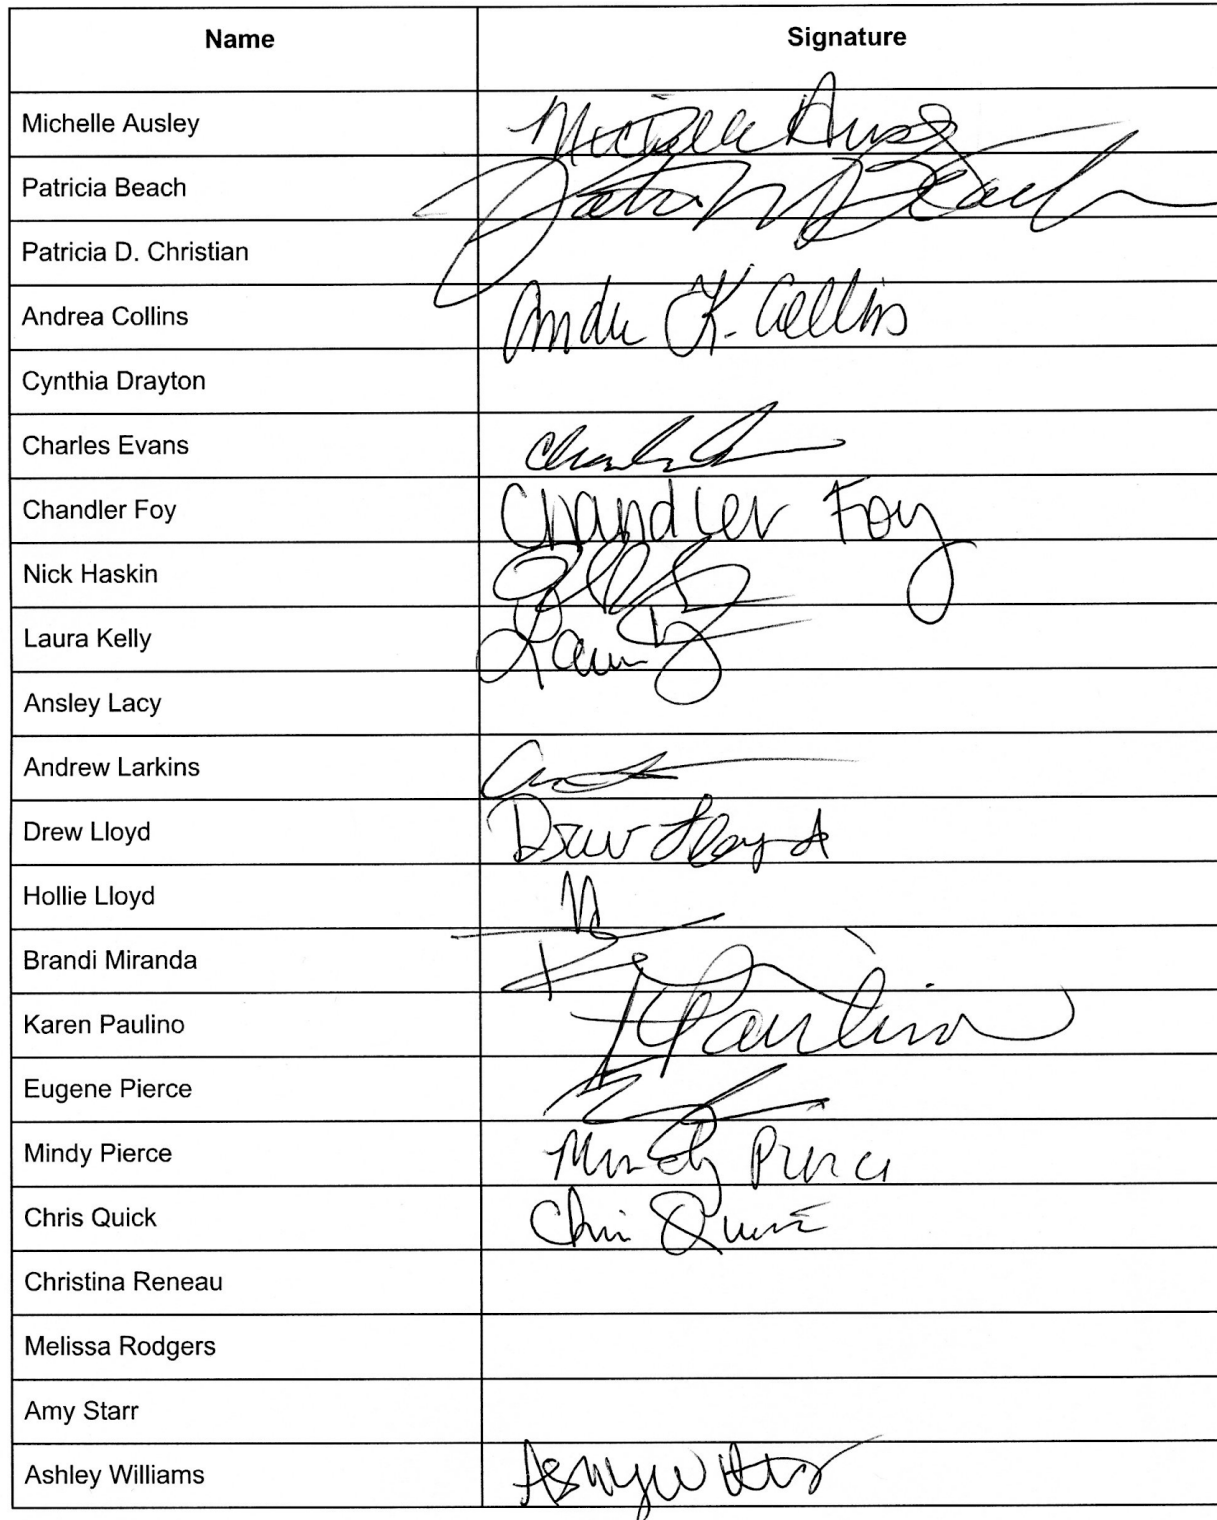 Name Signature
Michelle Ausley Michelle Ausley
Patricia Beach Patricia M Beach
Patricia D. Christian
Andrea Collins Andrea K. Collins
Cynthia Drayton
Charles Evans
Chandler Foy Chandler Foy
Nick Haskin
Laura Kelly Laura
Ansley Lacy
Andrew Larkins
Drew Lloyd Drew Lloyd
Hollie Lloyd
Brandi Miranda
Karen Paulino K Paulino
Eugene Pierce
Mindy Pierce Mindy Pierce
Chris Quick Chris Quick
Christina Reneau
Melissa Rodgers
Amy Starr
Ashley Williams